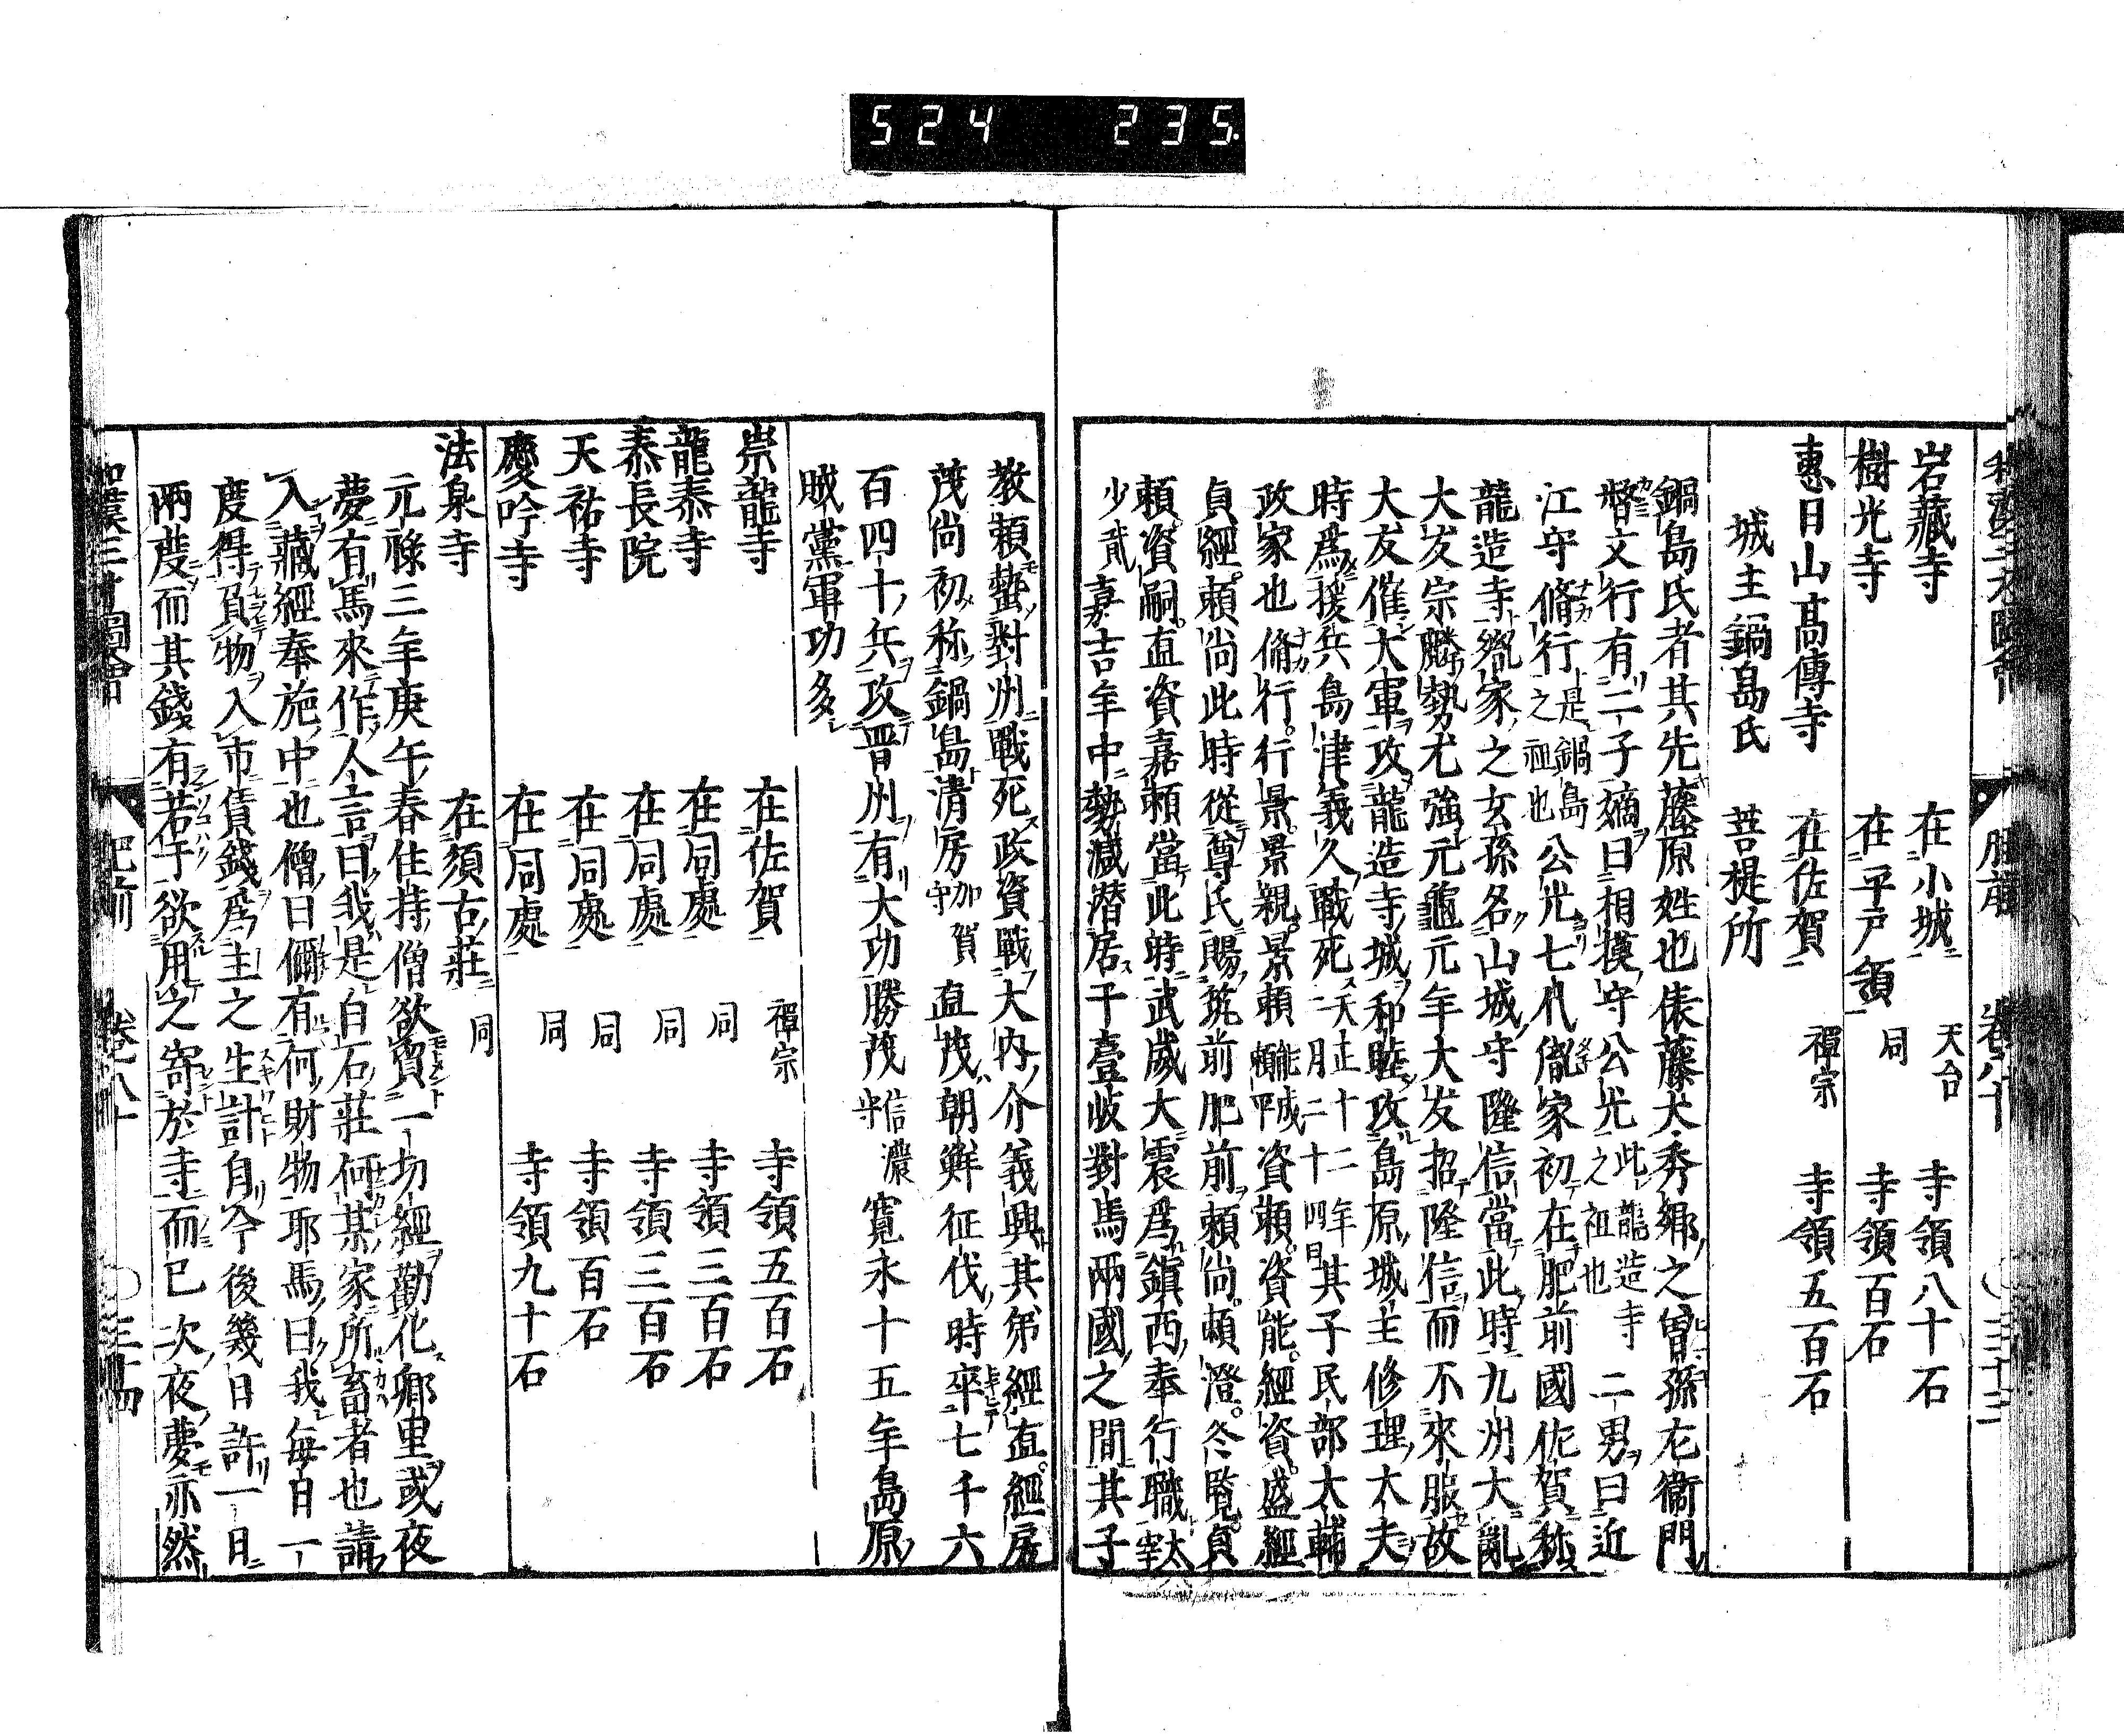 524 235
岩藏寺 在小城 天台 寺領八十石
樹光寺 在平戸領 同 寺領百石
惠日山高傳寺 在佐賀 禪宗 寺領五百石
城主鍋島氏 菩提所
鍋島氏者其先藤原姓也俵藤太秀郷之曽孫左衞門
督文行有二子嫡曰相摸守公光此龍造寺之祖也二男曰近
江守脩行是鍋島之祖也公光七代胤家初在肥前國佐賀称
龍造寺胤家之玄孫名山城守隆信當此時九州大亂
大友宗麟勢尤強元龜元年大友招隆信而不來服故
大友催大軍攻龍造寺城和睦攻島原城主修理大夫
時爲援兵島津義久戰死天正十二年二月二十四日其子民部大輔
政家也脩行行景景親景頼能成頼平資頼資能經資盛經
貞經頼尚此時從尊氏賜筑前肥前頼尚頼澄冬覧貞
頼資嗣直資嘉頼當此時武威大震爲鎭西奉行職太宰
少貳嘉吉年中勢滅潜居于壹岐對馬兩國之間其子
教頼蟄對州戰死政資戰大内介義興其弟經直經房
茂尚初称鍋島淸房加賀守直茂朝鮮征伐時卒七千六
百四十兵攻晋州有大功勝茂信濃守寛永十五年島原
賊黨軍功多
崇龍寺 在佐賀 禪宗 寺領五百石
龍泰寺 在同處 同 寺領三百石
泰長院 在同處 同 寺領三百石
天祐寺 在同處 同 寺領百石
慶吟寺 在同處 同 寺領九十石
法泉寺 在須古莊 同
元祿三年庚午春住持僧欲貿一切經勸化郷里或夜
夢有馬來作人言曰我是白石莊何某家所畜者也請
入藏經奉施中也僧曰儞有何財物耶馬曰我毎日一
度得負物入市賃錢爲主之生計自今後幾日許一日
兩度而其錢有若于欲用之寄於寺而已次夜夢亦然
肥前 三十四